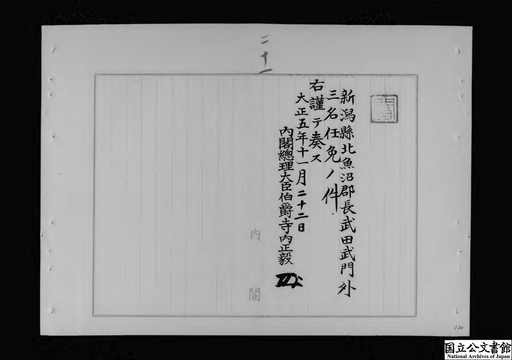 二十一
新潟縣北魚沼郡長武田武門外
三名任免ノ件
右謹テ奏ス
大正五年十一月二十二日
內閣總理大臣伯爵寺內正毅
內閣
国立公文書館
National Archives of Japan